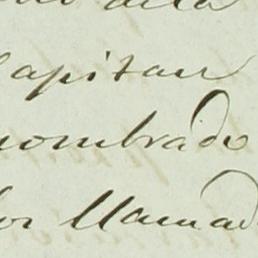 de la
Capitan
nombrado
los llamad